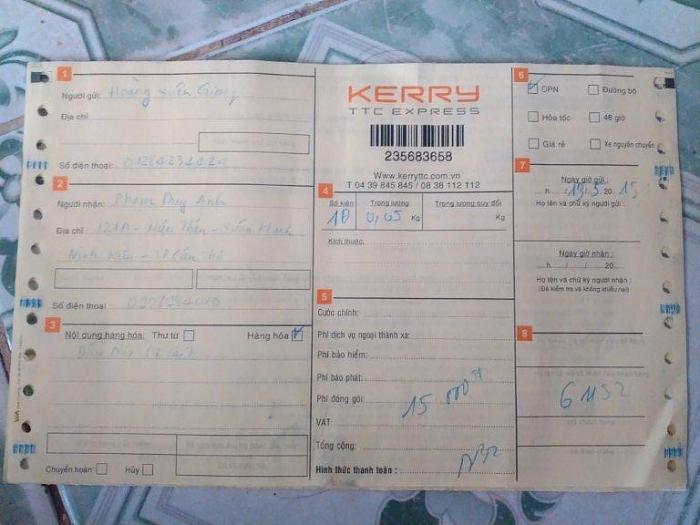 1
Người gửi: Hoàng Xuân Giang
Địa chỉ
Số điện thoại:
2
Người nhận: Phạm Duy Anh
Địa chỉ 121A - Mậu Thân - Xuân Khánh
Ninh Kiều - TP Cần Thơ
Số điện thoại
3
Nội dung hàng hóa: Thư từ Hàng hóa
Chuyển hoàn Hủy
KERRY
TTC EXPRESS
235683658
Www.kerryttc.com.vn
T 04 39 845 845 / 08 38 112 112
4
Số kiện Trọng lượng Trọng lượng quy đổi
18 0,05 Kg Kg
Kích thước:
5
Cước chính:
Phí dịch vụ ngoại thành xa:
Phí bảo hiểm:
Phí báo phát:
Phí đóng gói: 15 000đ
VAT:
Tổng cộng:
Hình thức thanh toán :
6
CPN Đường bộ
Hỏa tốc 48 giờ
Giá rẻ Xe nguyên chuyến
7
Ngày giờ gửi
h 19/5 20 15
Họ tên và chữ ký người gửi
Ngày giờ nhận
h / / 20
Họ tên và chữ ký người nhận
(Đã kiểm tra và không khiếu nại)
8
61152